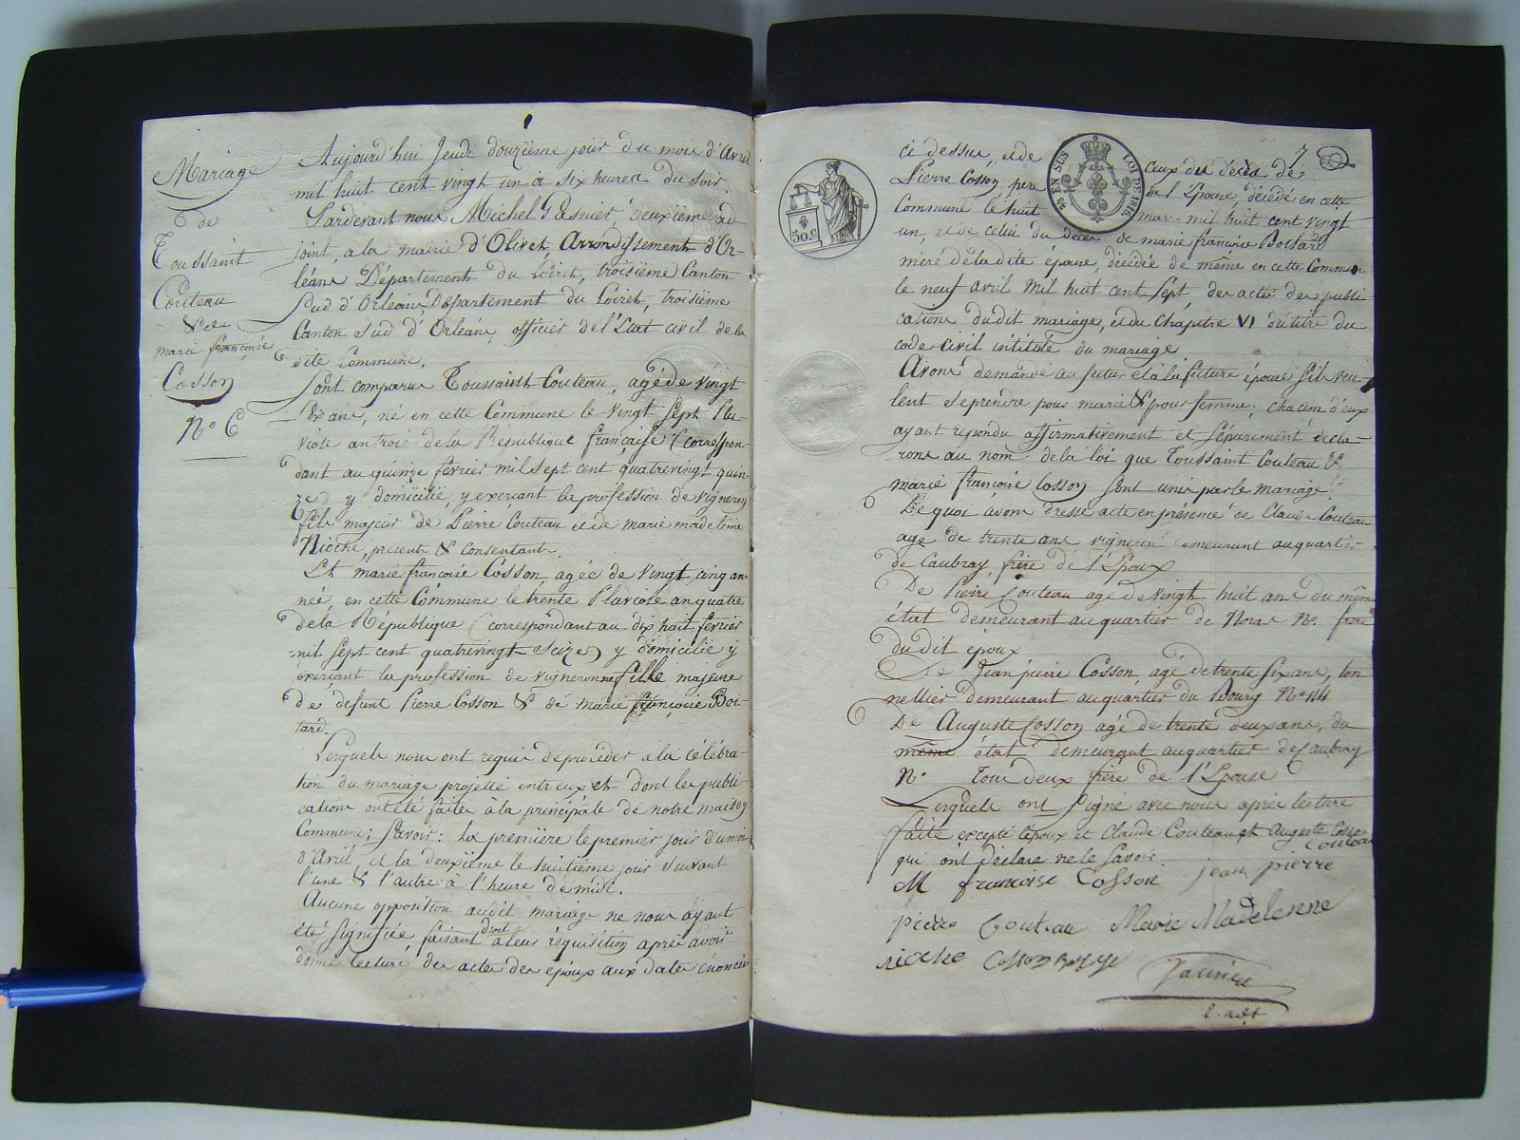 Mariage
de
Toussaint
Couteau
& de
marie françoise
Cosson
N° 6
Aujourd'hui Jeudi douzième jour du mois d'Avril
mil huit cent vingt un à six heures du soir.
Pardevant nous Michel deuxième ad
joint, a la mairie d'Olivet Arrondissement d'Or-
léans Département du Loiret, troisième Canton
Sud d'Orléans, Département du Loiret, troisième
Canton Sud d'Orléans, officier de l'Etat civil de la
dite Commune.
Sont comparus Toussaint Couteau, agé de vingt
six ans, né en cette Commune le vingt sept Plu-
viose an trois de la République française (correspon-
dant au quinze fevrier mil sept cent quatrevingt quin-
ze) y domicilié, y exerçant la profession de vigneron
fils majeur de Pierre Couteau et de marie madeleine
Nioche, présents & consentants.
Et marie françoise Cosson agée de vingt cinq ans
née en cette Commune le trente Pluviose an quatre
de la République (correspondant au dix huit fevrier
mil sept cent quatrevingt seize) y domicilié y
exerçant la profession de vigneronne fille majeure
de défunt Pierre Cosson & de marie françoise Boi-
tard.
Lesquels nous ont requis de procéder à la célébra-
tion du mariage projetté entre eux, et dont les publi-
cations ont été faites à la principale de notre maison
Commune; Savoir: La première le premier jour du mois
d'Avril, et la deuxième le huitième jour suivant
l'une & l'autre à l'heure de midi.
Aucune opposition audit mariage ne nous ayant
été signifiée, faisant droit à leur réquisition après avoir
donné lecture des actes des époux aux dates énoncées
7
ci dessus, et de ceux des décès de
Pierre Cosson, père de l'Epouse, décédé en cette
Commune le huit mars mil huit cent vingt
un, et de celui du décès de marie françoise Boitard
mère de la dite épouse, décédée de même en cette Commune
le neuf avril mil huit cent sept, des actes des publi-
cations dudit mariage, et du Chapitre VI du titre du
code Civil intitulé du mariage
Avons demandé au futur et à la future époux s'ils veu-
lent se prendre pour mari & pour femme; chacun d'eux
ayant répondu affirmativement et séparément décla-
rons au nom de la loi que Toussaint Couteau &
marie françoise Cosson sont unis par le mariage.
De quoi avons dressé acte en présence de Claude Couteau
agé de trente ans vigneron demeurant au quartier
de Caubray frère de l'Epoux
De Pierre Couteau agé de vingt huit ans du même
état demeurant au quartier de N° frère
du dit époux
De Jean pierre Cosson, agé de trente six ans, ton
nellier demeurant au quartier du Bourg N° 114
De Auguste Cosson agé de trente deux ans, du
même état demeurant au quartier de Caubray
N° Tous deux frère de l'Epouse
Lesquels ont signé avec nous après lecture
faite excepté l'époux et Claude Couteau et Auguste Cosson
qui ont déclaré ne le savoir.
M françoise Cosson jean pierre
Couteau
pierre Couteau Marie Madelenne
nioche Cosson
EN SUS LOI DE 1816
50c